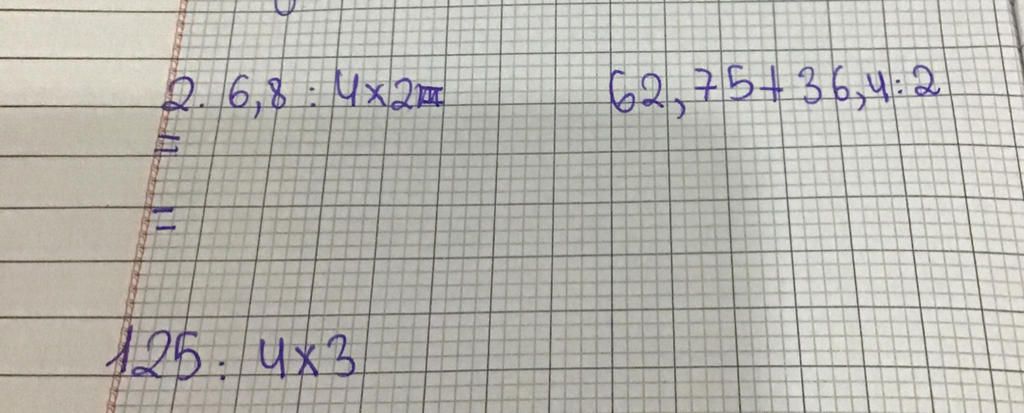 2. 6,8 : 4 x 2 62,75 + 36,4 : 2
=
=
125 : 4 x 3